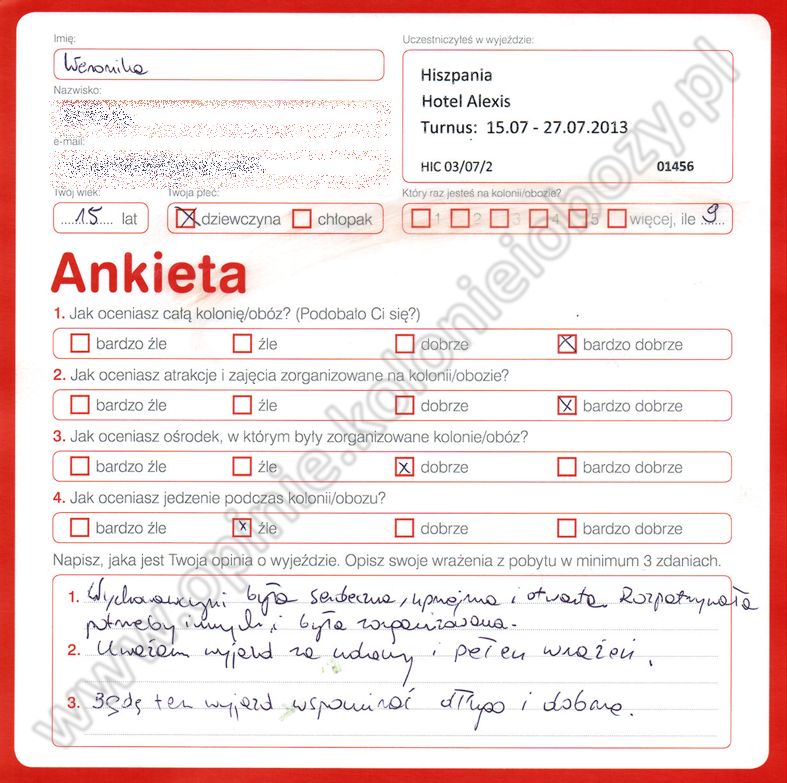 Imię:
Uczestniczyłeś w wyjeździe:
Weronika
Hiszpania
Hotel Alexis
Turnus: 15.07 - 27.07.2013
HIC 03/07/2
01456
Nazwisko:
e-mail:
Twój wiek:
Twoja płeć:
Który raz jesteś na kolonii/obozie?
15 lat
dziewczyna
chłopak
1 2 3 4 5 więcej, ile 9
Ankieta
1. Jak oceniasz całą kolonię/obóz? (Podobało Ci się?)
bardzo źle źle dobrze bardzo dobrze
2. Jak oceniasz atrakcje i zajęcia zorganizowane na kolonii/obozie?
bardzo źle źle dobrze bardzo dobrze
3. Jak oceniasz ośrodek, w którym były zorganizowane kolonie/obóz?
bardzo źle źle dobrze bardzo dobrze
4. Jak oceniasz jedzenie podczas kolonii/obozu?
bardzo źle źle dobrze bardzo dobrze
Napisz, jaka jest Twoja opinia o wyjeździe. Opisz swoje wrażenia z pobytu w minimum 3 zdaniach.
1. Wychowawczyni była serdeczna, uprzejma i otwarta. Rozpatrywała
potrzeby innych, i była zorganizowana.
2. Uważam wyjazd za udany i pełen wrażeń.
3. Będę ten wyjazd wspominać długo i dobrze.
www.opinie.kolonieiobozy.pl